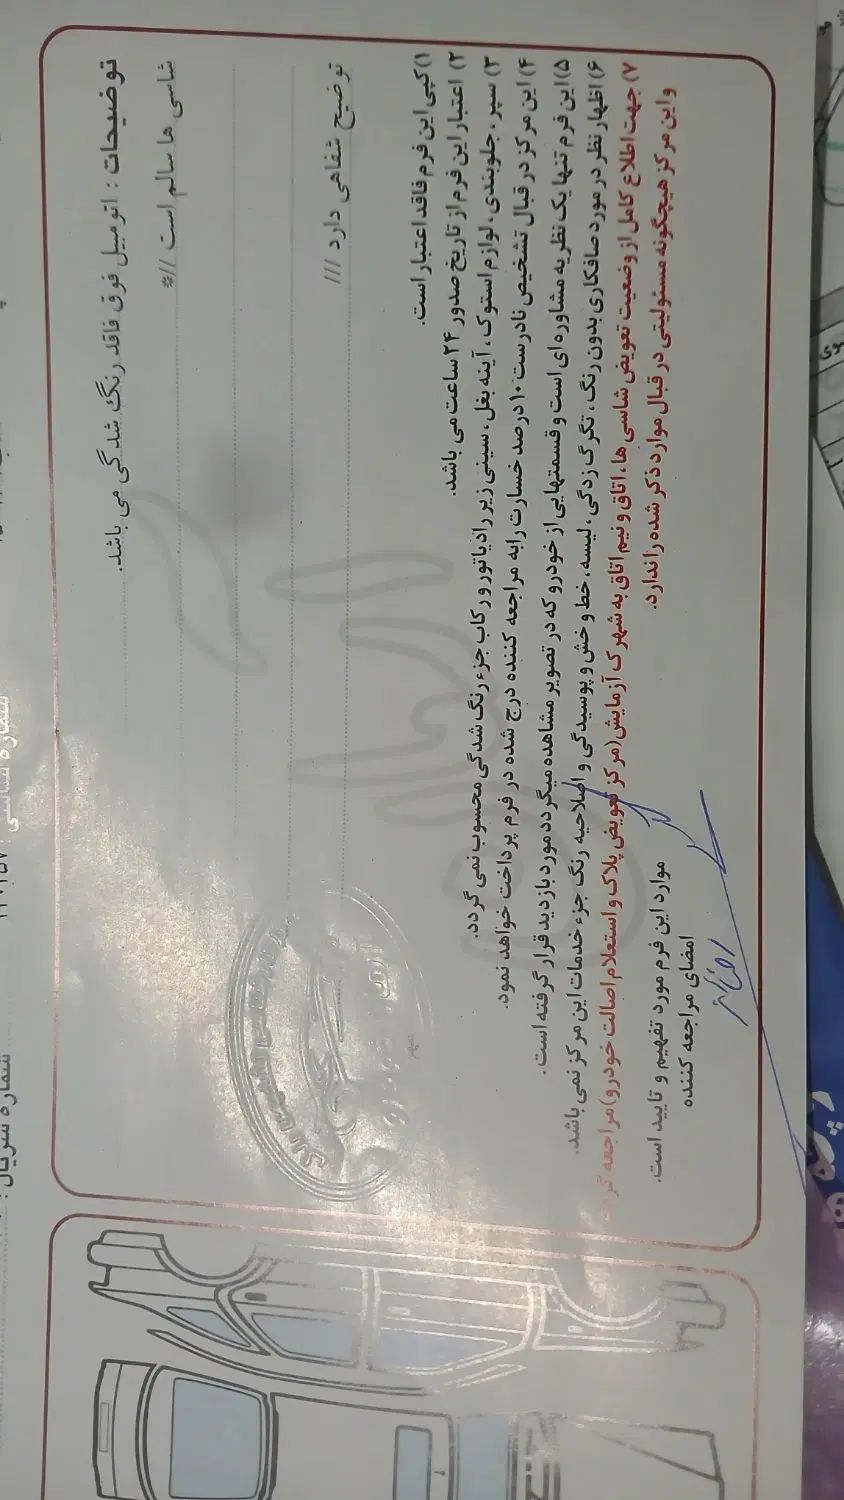 توضیحات : اتومبیل فوق فاقد رنگ شدگی می باشد.
شاسی ها سالم است //*
توضیح شفاهی دارد ///
۱) کپی این فرم فاقد اعتبار است.
۲) اعتبار این فرم از تاریخ صدور ۲۴ ساعت می باشد.
۳) سپر، جلوبندی، لوازم استوک، آینه بغل، سینی زیر رادیاتور و رکاب جزء رنگ شدگی محسوب نمی گردد.
۴) این مرکز در قبال تشخیص نادرست ۱۰ درصد خسارت را به مراجعه کننده درج شده در فرم پرداخت خواهد نمود.
۵) این فرم تنها یک نظریه مشاوره ای است و قسمتهایی از خودرو که در تصویر مشاهده میگردد مورد بازدید قرار گرفته است.
۶) اظهار نظر در مورد صافکاری بدون رنگ، تگرگ زدگی، لیسه، خط و خش و پوسیدگی و اصلاحیه رنگ جزء خدمات این مرکز نمی باشد.
۷) جهت اطلاع کامل از وضعیت تعویض شاسی ها، اتاق و نیم اتاق به شهرک آزمایش (مرکز تعویض پلاک و استعلام اصالت خودرو) مراجعه گردد
و این مرکز هیچگونه مسئولیتی در قبال موارد ذکر شده را ندارد.
موارد این فرم مورد تفهیم و تایید است.
امضای مراجعه کننده
مهر
شماره شاسی :
شماره سریال :